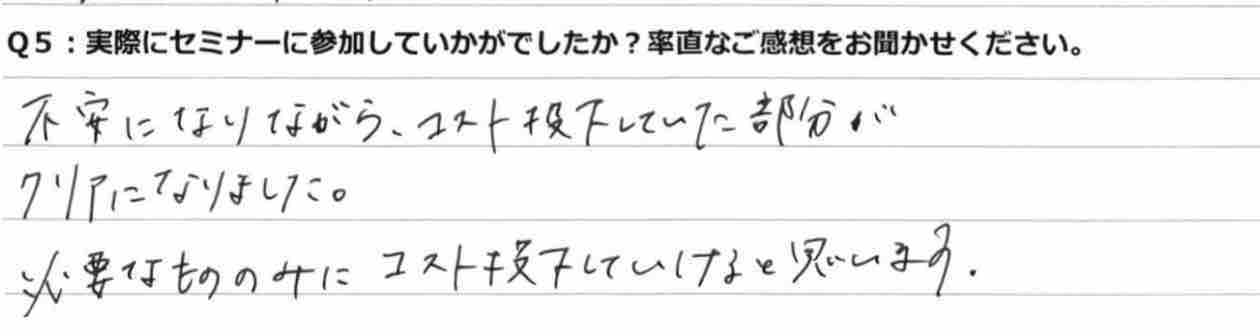 Q5：実際にセミナーに参加していかがでしたか？率直なご感想をお聞かせください。
不安になりながら、コスト投下していた部分が
クリアになりました。
必要なもののみにコスト投下していけると思います。